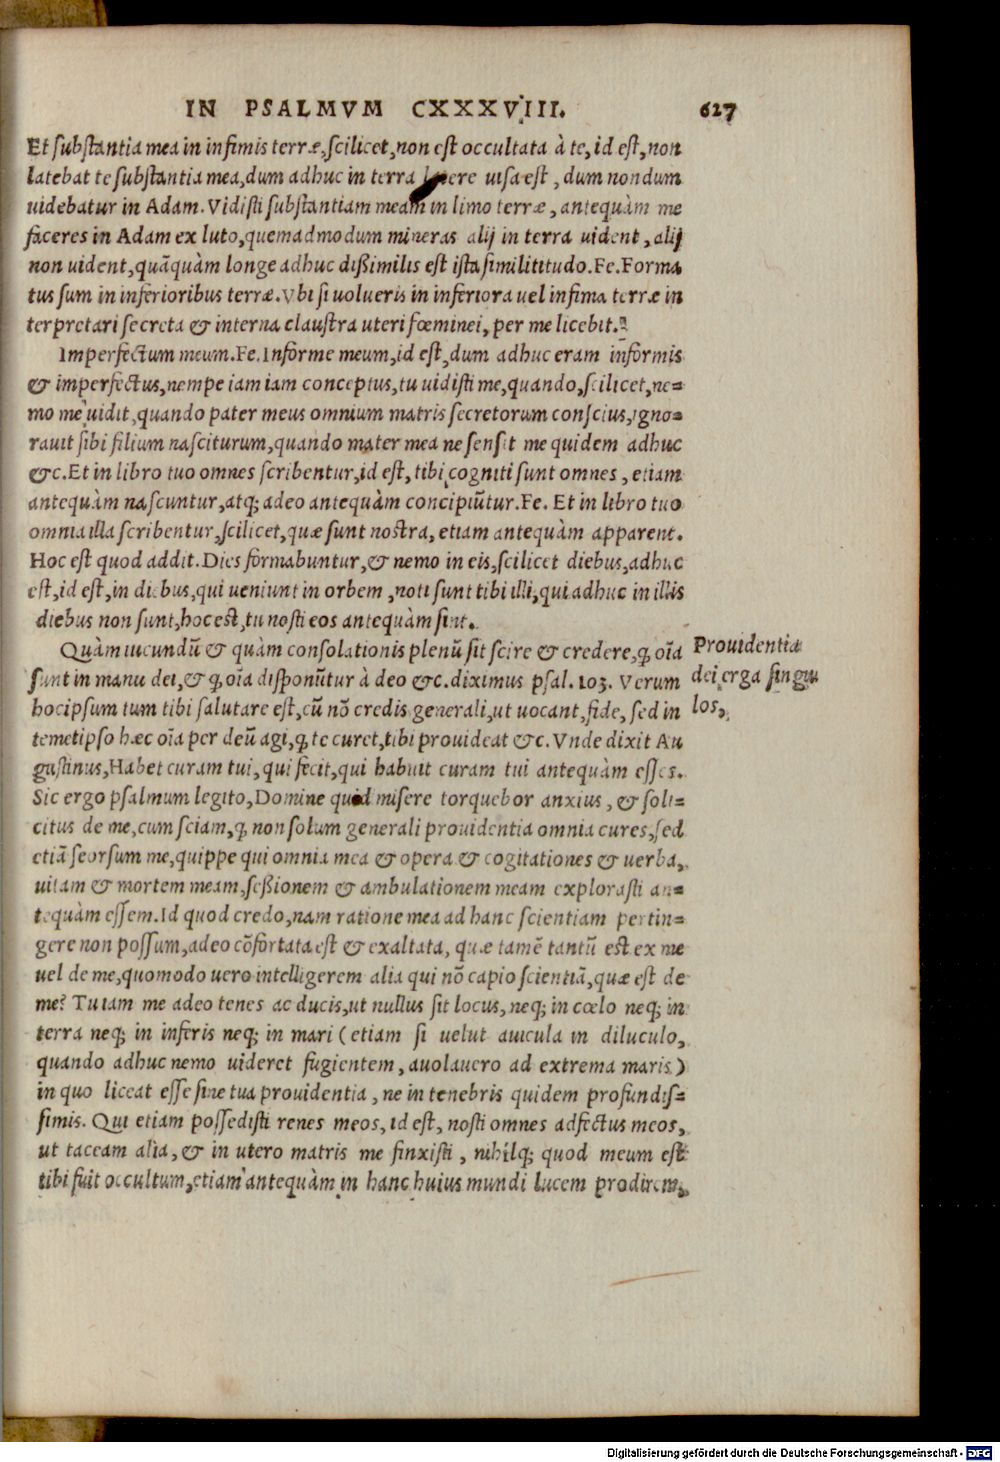 IN PSALMVM CXXXVIII. 627
Et substantia mea in infimis terræ, scilicet, non est occultata à te, id est, non
latebat te substantia mea, dum adhuc in terra uisa est, dum nondum
uidebatur in Adam. Vidisti substantiam meam in limo terræ, antequàm me
faceres in Adam ex luto, quemadmodum mineras alij in terra uident, alij
non uident, quãquàm longe adhuc dißimilis est ista simililitudo. Fe. Forma
tus sum in inferioribus terræ. Vbi si uolueris in inferiora uel infima terræ in
terpretari secreta & interna claustra uteri fœminei, per me licebit.
Imperfectum meum. Fe. Informe meum, id est, dum adhuc eram informis
& imperfectus, nempe iam iam conceptus, tu uidisti me, quando, scilicet, ne=
mo me uidit, quando pater meus omnium matris secretorum conscius, igno=
rauit sibi filium nasciturum, quando mater mea ne sensit me quidem adhuc
&c. Et in libro tuo omnes scribentur, id est, tibi cogniti sunt omnes, etiam
antequàm nascuntur, atq; adeo antequàm concipiũtur. Fe. Et in libro tuo
omnia illa scribentur, scilicet, quæ sunt nostra, etiam antequàm apparent.
Hoc est quod addit. Dies formabuntur, & nemo in eis, scilicet diebus, adhuc
est, id est, in diebus, qui ueniunt in orbem, noti sunt tibi illi, qui adhuc in illis
diebus non sunt, hoc est, tu nosti eos antequàm sint.
Quàm iucundũ & quàm consolationis plenũ sit scire & credere, q, oĩa
sunt in manu dei, & q, oĩa disponũtur à deo &c. diximus psal. 103. Verum
hoc ipsum tum tibi salutare est, cũ nõ credis generali, ut uocant, fide, sed in
temetipso hæc oĩa per deũ agi, q, te curet, tibi prouideat &c. Vnde dixit Au
gustinus, Habet curam tui, qui fecit, qui habuit curam tui antequàm esses.
Sic ergo psalmum legito, Domine quid misere torquebor anxius, & soli=
citus de me, cum sciam, q, non solum generali prouidentia omnia cures, sed
etiã seorsum me, quippe qui omnia mea & opera & cogitationes & uerba,
uitam & mortem meam, seßionem & ambulationem meam explorasti an=
tequàm essem. Id quod credo, nam ratione mea ad hanc scientiam pertin=
gere non possum, adeo cõfortata est & exaltata, quæ tamẽ tantũ est ex me
uel de me, quomodo uero intelligerem alia qui nõ capio scientiã, quæ est de
me? Tu iam me adeo tenes ac ducis, ut nullus sit locus, neq; in cœlo neq; in
terra neq; in inferis neq; in mari (etiam si uelut auicula in diluculo,
quando adhuc nemo uideret fugientem, auolauero ad extrema maris)
in quo liceat esse sine tua prouidentia, ne in tenebris quidem profundis=
simis. Qui etiam possedisti renes meos, id est, nosti omnes adfectus meos,
ut taceam alia, & in utero matris me finxisti, nihilq; quod meum est
tibi fuit occultum, etiam antequàm in hanc huius mundi lucem prodirem,
Prouidentia
dei erga singu
los.
Digitalisierung gefördert durch die Deutsche Forschungsgemeinschaft - DFG